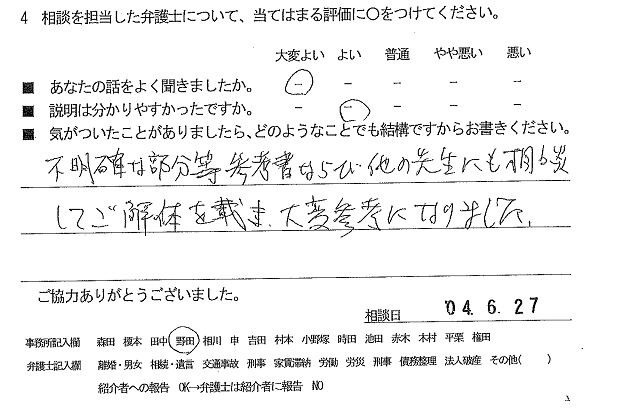 4 相談を担当した弁護士について、当てはまる評価に○をつけてください。
大変よい よい 普通 やや悪い 悪い
■ あなたの話をよく聞きましたか。 － － － － －
■ 説明は分かりやすかったですか。 － － － － －
■ 気がついたことがありましたら、どのようなことでも結構ですからお書きください。
不明確な部分等参考書ならび他の先生にも相談
してご解体を載ま、大変参考になりました。
ご協力ありがとうございました。
相談日 '04. 6. 27
事務所記入欄 森田 榎本 田中 野田 相川 申 吉田 村本 小野塚 時田 池田 赤木 木村 平栗 権田
弁護士記入欄 離婚・男女 相続・遺言 交通事故 刑事 家賃滞納 労働 労災 刑事 債務整理 法人破産 その他( )
紹介者への報告 OK→弁護士は紹介者に報告 NO